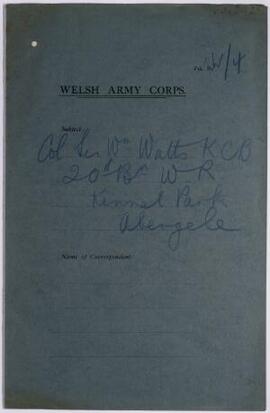 W/4
WELSH ARMY CORPS.
Subject
Col Sir Wm Watts KCB
20th Bn W R
Kinmel Park
Abergele
Name of Correspondent